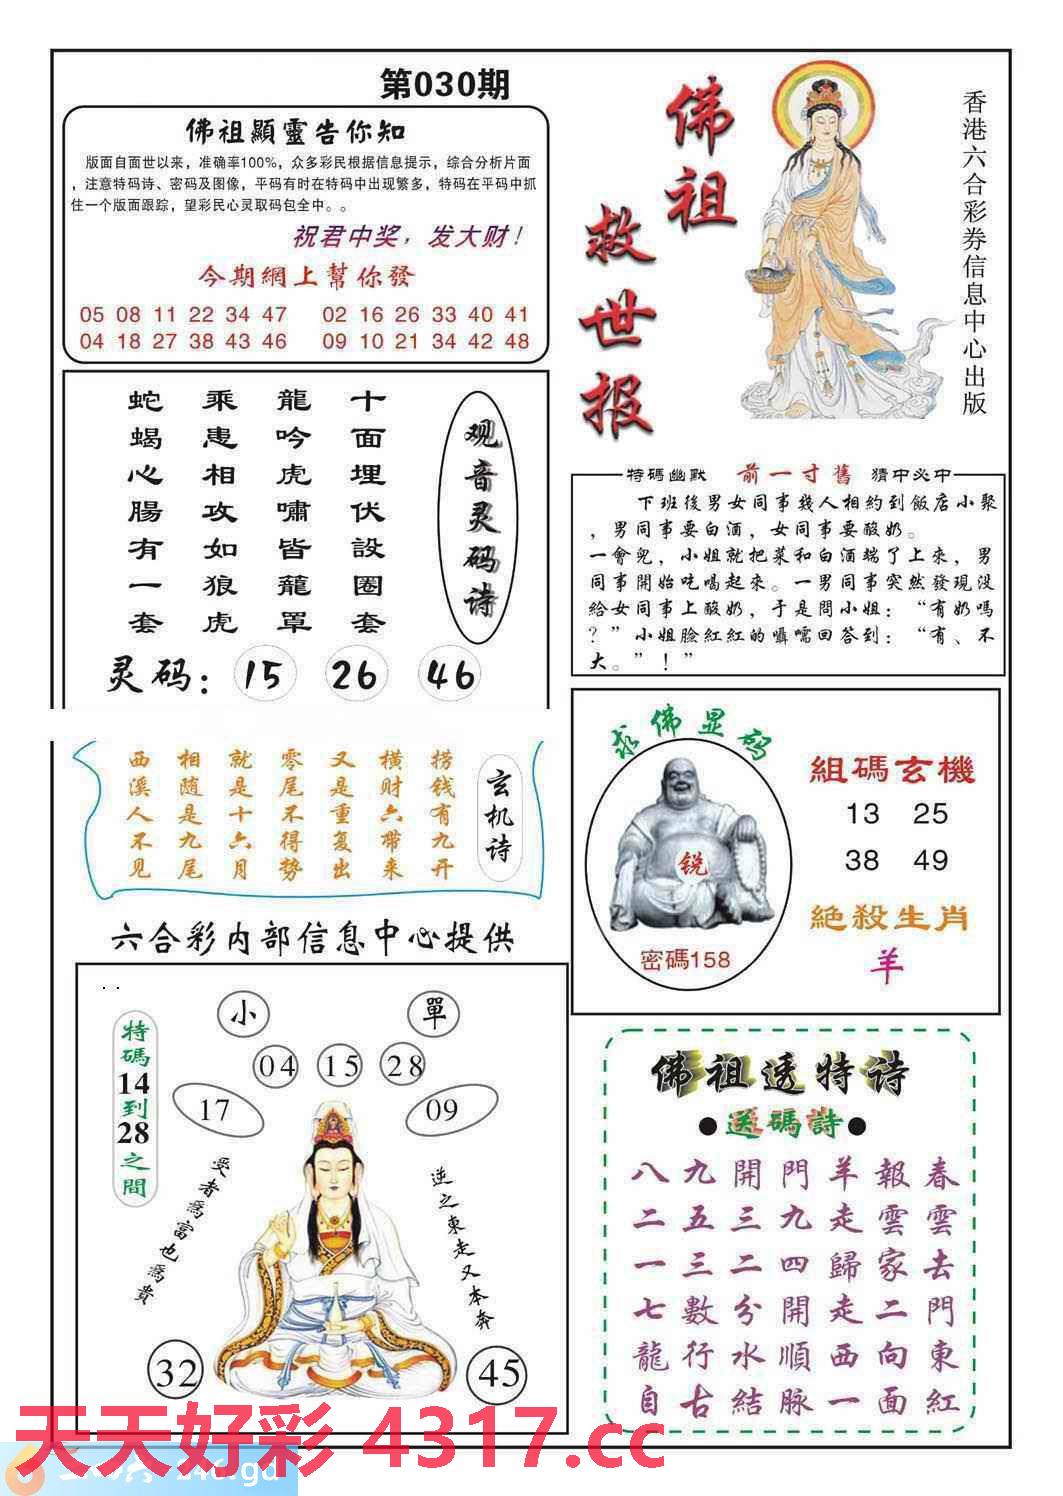 第030期
佛祖顯靈告你知
版面自面世以来，准确率100%，众多彩民根据信息提示，综合分析片面
，注意特码诗、密码及图像，平码有时在特码中出现繁多，特码在平码中抓
住一个版面跟踪，望彩民心灵取码包全中。。
祝君中奖，发大财！
今期網上幫你發
05 08 11 22 34 47 02 16 26 33 40 41
04 18 27 38 43 46 09 10 21 34 42 48
佛祖
救世报
香港六合彩券信息中心出版
观音灵码诗
十面埋伏設圈套
龍吟虎嘯皆龍罩
乘患相攻如狼虎
蛇蝎心腸有一套
灵码：15 26 46
特碼幽默 前一寸舊 猜中必中
下班後男女同事幾人相約到飯店小聚
，男同事要白酒，女同事要酸奶。
一會兒，小姐就把菜和白酒端了上來，男
同事開始吃喝起來。一男同事突然發現沒
給女同事上酸奶，于是問小姐：“有奶嗎
？”小姐臉紅紅的囁嚅回答到：“有、不
大。”！”
玄机诗
捞钱有九开
横财六带来
又是重复出
零尾不得势
就是十六月
相随是九尾
西溪人不见
六合彩内部信息中心提供
求佛显码
锐
密碼158
組碼玄機
13 25
38 49
絕殺生肖
羊
特碼14到28之間
小
單
04 15 28
17
09
受者為富也為貴
逆之東走又本奔
32
45
佛祖透特诗
●送碼詩●
八九開門羊報春
二五三九走雲雲
一三二四歸家去
七數分開走二門
龍行水順西向東
自古結脉一面紅
天天好彩 4317.cc
246.gd